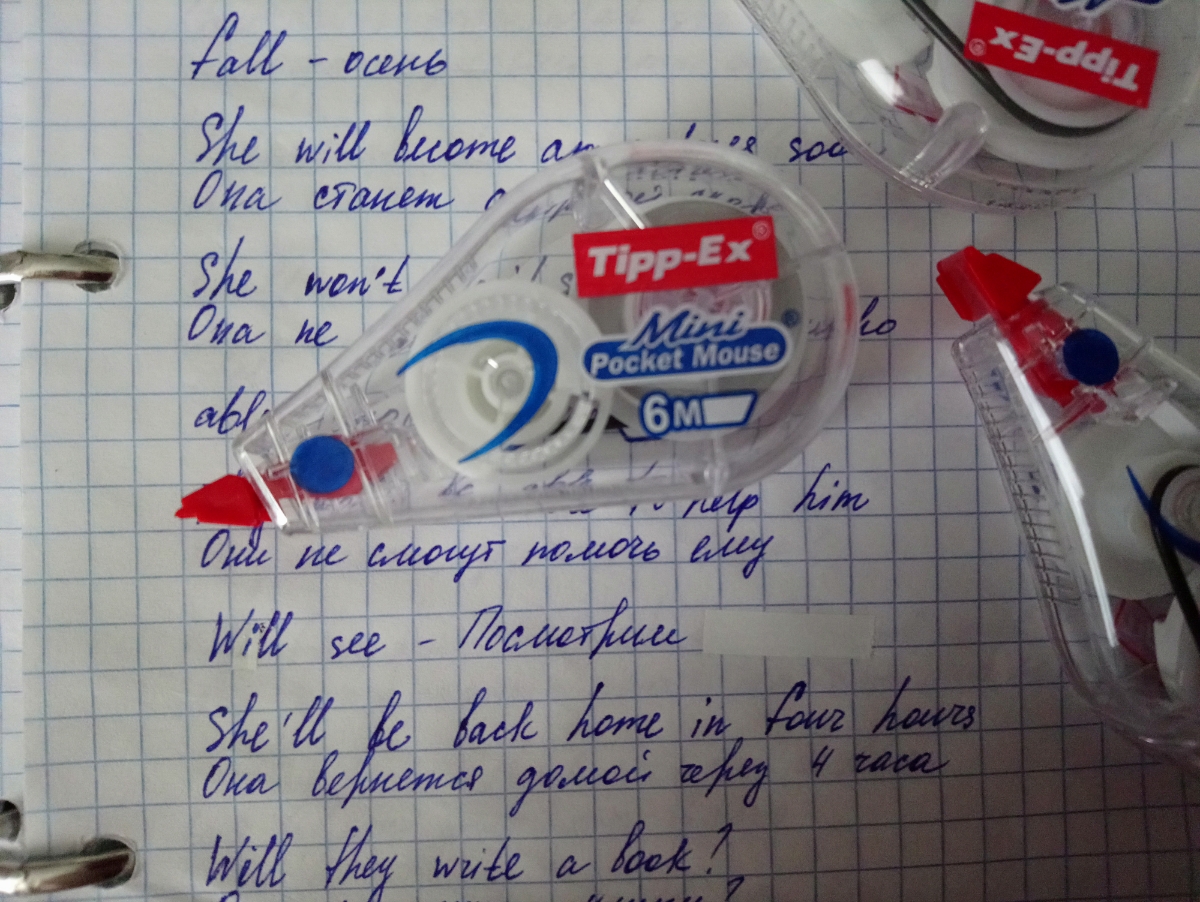 fall - осень
Tipp-Ex
She will become an soo
Она станет
Tipp-Ex
She won't
Она не но
Mini
Pocket Mouse
6M
abl
to help him
Они не смогут помочь ему
Will see - Посмотрим
She'll be back home in four hours
Она вернется домой через 4 часа
Will they write a book?